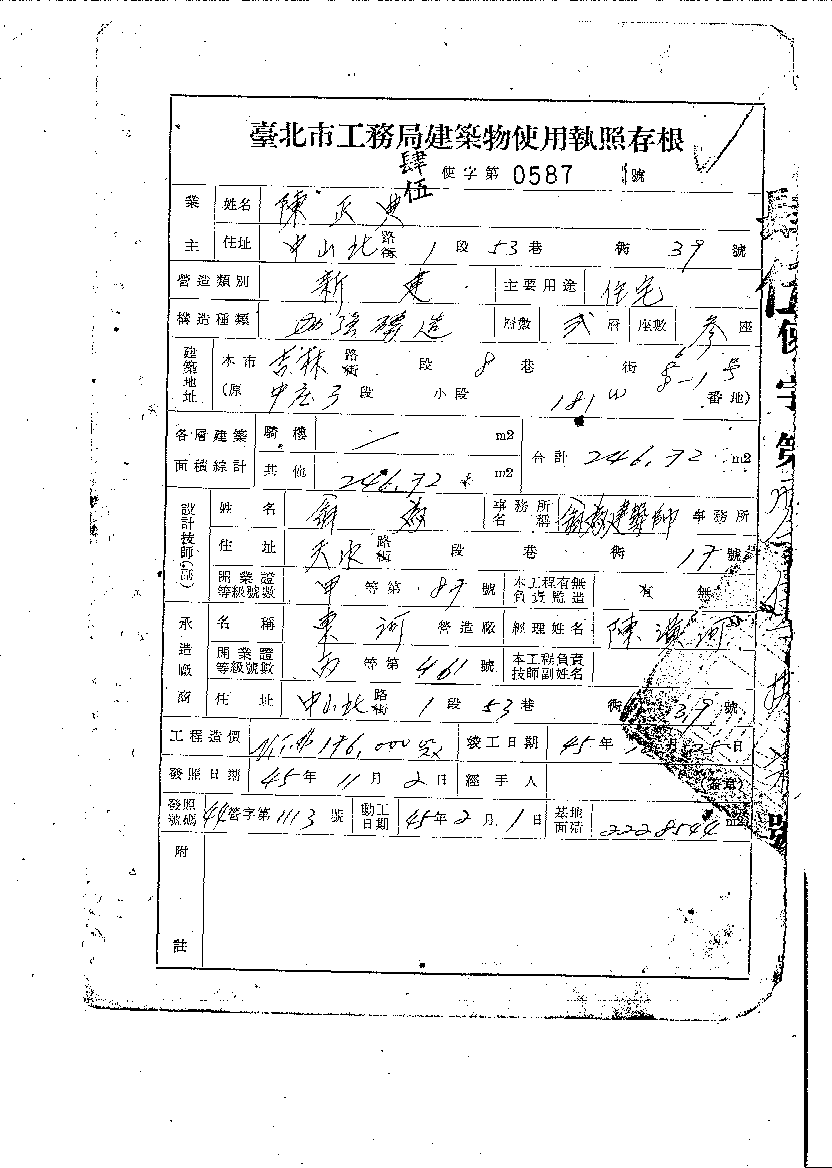 臺北市工務局建築物使用執照存根
肆伍 使字第 0587 號
業主 姓名 陳正
住址 中山北路街 1 段 53 巷 衖 39 號
營造類別 新建 主要用途 住宅
構造種類 加強磚造 層數 貳層 座數 參座
建築地址 本市 吉林路街 段 8 巷 衖 8-1号
(原 中庄子段 小段 181 番地)
各層建築面積總計 騎樓 m2 合計 246.72 m2
其他 246.72 m2
設計技師 姓名 事務所名稱 建築師事務所
住址 天水路街 段 巷 衖 17 號
開業證等級號數 甲等第 87 號 本工程有無負責監造 有 無
承造廠商 名稱 東河營造廠 經理姓名 陳漢河
開業證等級號數 丙等第 461 號 本工程負責技師副姓名
住址 中山北路街 1 段 53 巷 衖 39 號
工程造價 176,000 竣工日期 45年 月 25日
發照日期 45年 11月 2日 經手人 (簽章)
發照號碼 44營字第 1113 號 動工日期 45年 2月 1日 基地面積 m2
附註